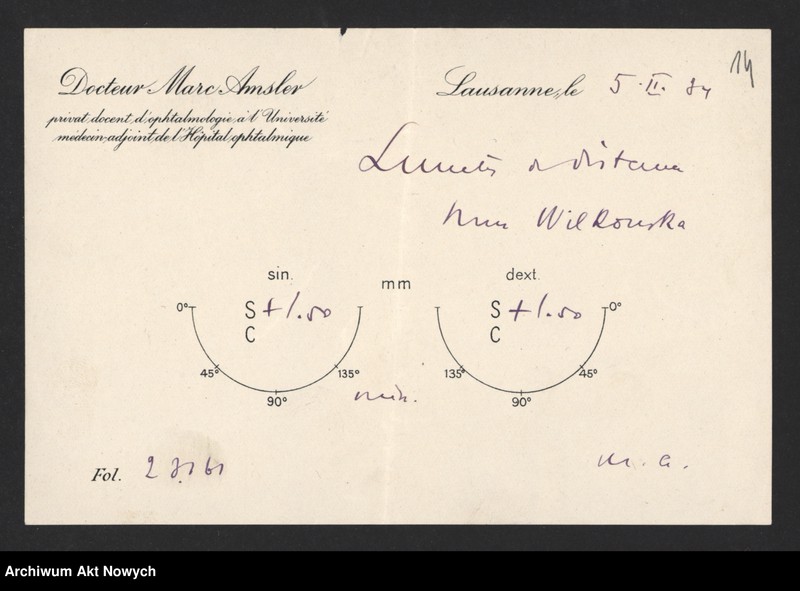 14
Docteur Marc Amsler
privat docent d'ophtalmologie à l'Université
médecin-adjoint de l'Hôpital ophtalmique
Lausanne, le 5. II. 34
Lunettes distance
Mme Wilkonska
sin. mm dext.
0° S +1.50 S +1.50 0°
C C
45° 135° 135° 45°
90° 90°
Fol.
m. a.
Archiwum Akt Nowych